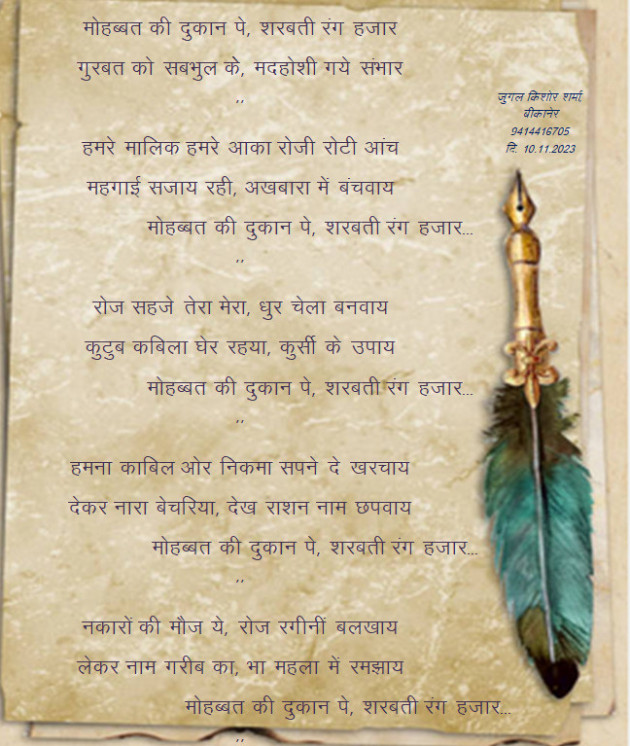 मोहब्बत की दुकान पे, शरबती रंग हजार
गुरबत को सबभुल के, मदहोशी गये संभार
,,
हमरे मालिक हमरे आका रोजी रोटी आंच
महगाई सजाय रही, अखबारा में बंचवाय
मोहब्बत की दुकान पे, शरबती रंग हजार...
,,
रोज सहजे तेरा मेरा, धुर चेला बनवाय
कुटुब कबिला घेर रहया, कुर्सी के उपाय
मोहब्बत की दुकान पे, शरबती रंग हजार...
,,
हमना काबिल ओर निकमा सपने दे खरचाय
देकर नारा बेचरिया, देख राशन नाम छपवाय
मोहब्बत की दुकान पे, शरबती रंग हजार...
,,
नकारों की मौज ये, रोज रगीनीं बलखाय
लेकर नाम गरीब का, भा महला में रमझाय
मोहब्बत की दुकान पे, शरबती रंग हजार...
,,
जुगल किशोर शर्मा,
बीकानेर
9414416705
दि. 10.11.2023